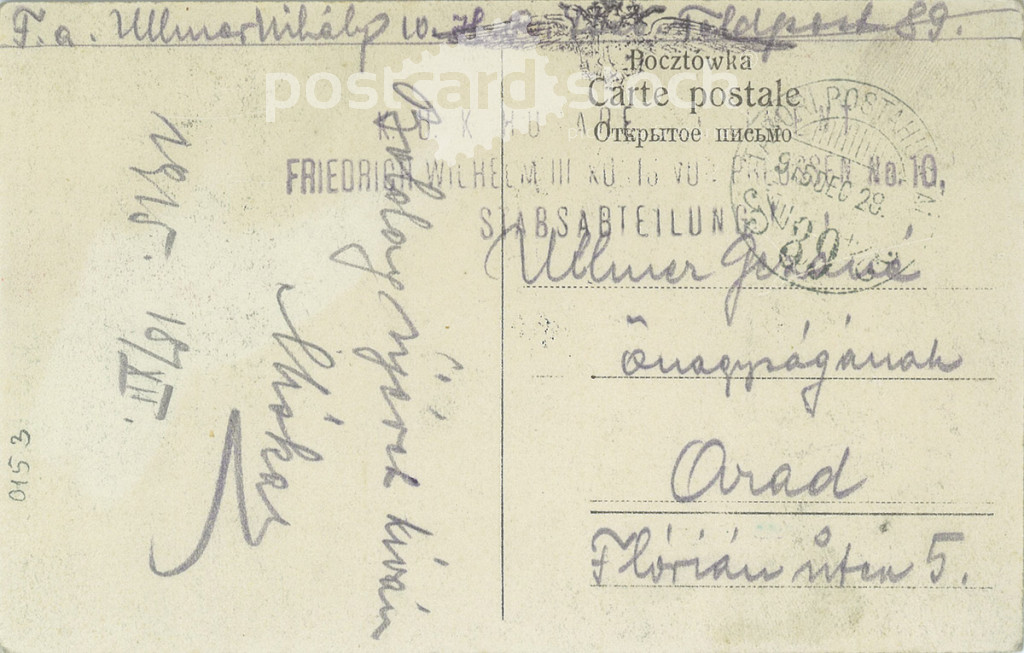 F. a. Ullmer Mihály 10. Feldpost 89.
postcard
Pocztówka
Carte postale
Открытое письмо
FRIEDRICH WILHELM III KÖNIG VON PREUSSEN No. 10,
STABSABTEILUNG
TÁBORI POSTAHIVATAL
915 DEC 28.
89
Ullmer Gézáné
őnagyságának
Arad
Flórián utca 5.
Boldog újévet kíván
Miska
1915. 18/XII.
0153